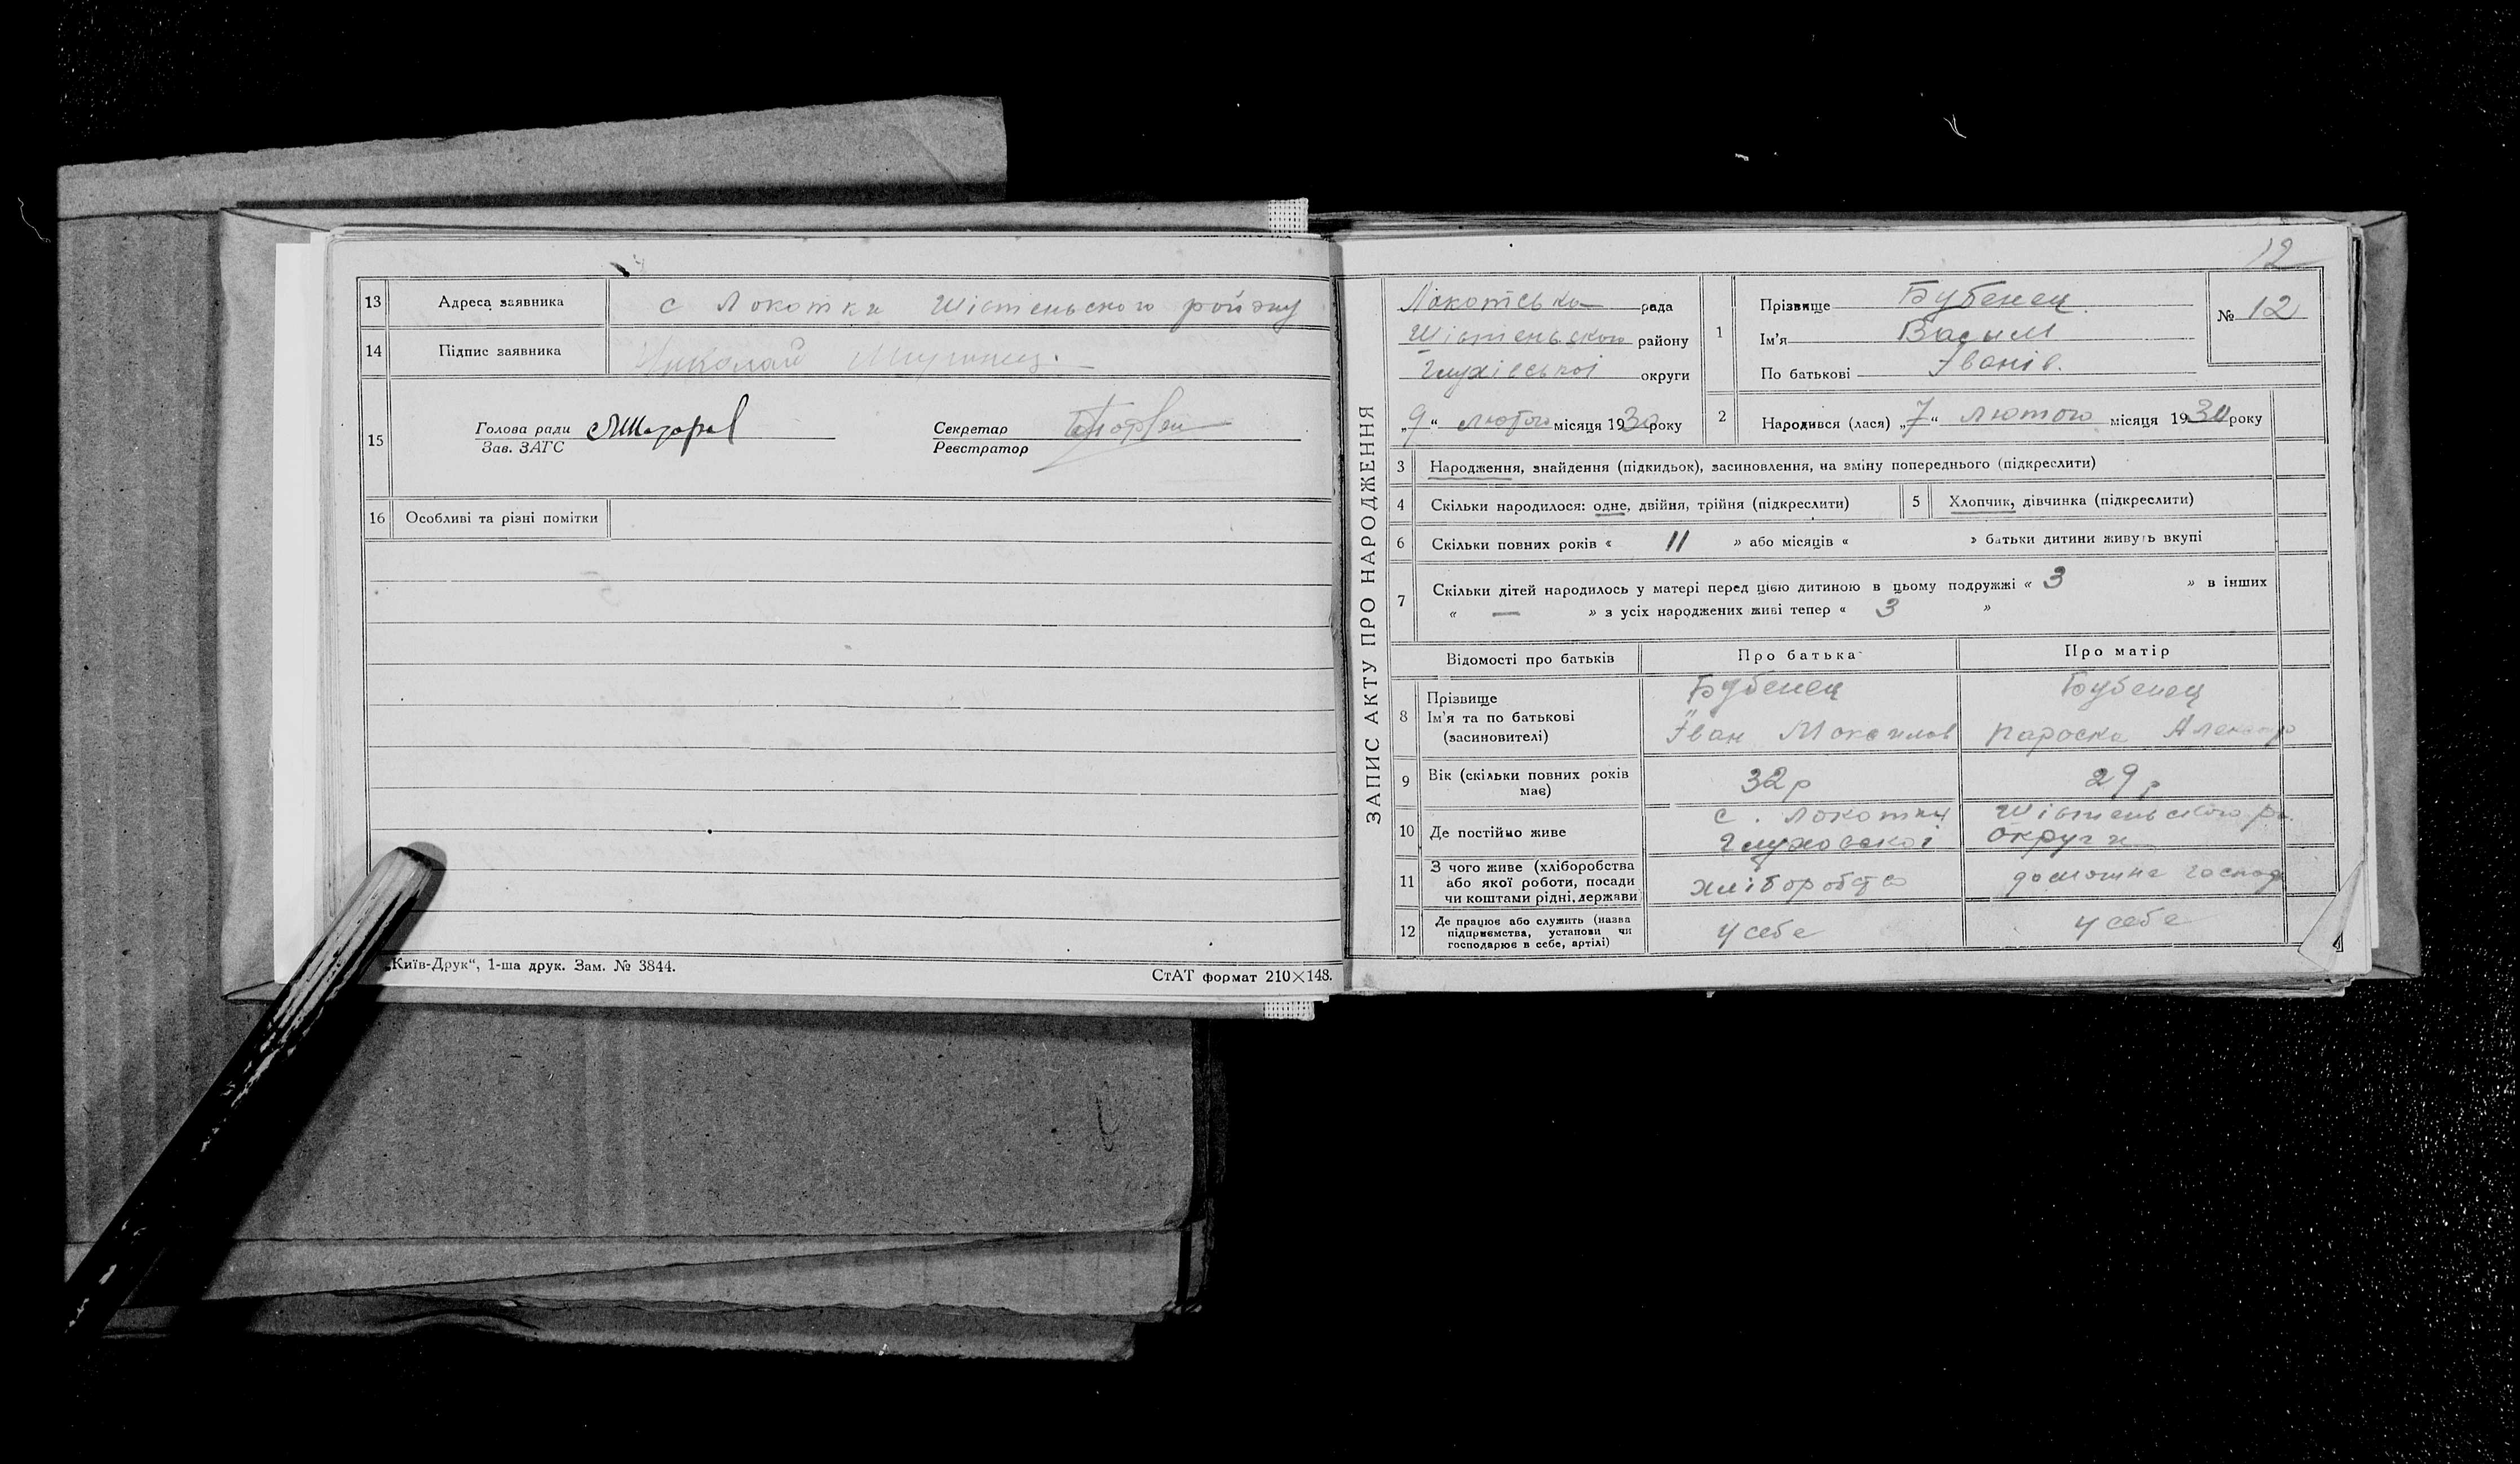 13 Адреса заявника с Локотки Шістеньського ройэну
14 Підпис заявника Николай
15 Голова ради
Зав. ЗАГС
Секретар
Реєстратор
16 Особливі та різні помітки
„Київ-Друк“, 1-ша друк. Зам. № 3844.
СтАТ формат 210×148.
12
ЗАПИС АКТУ ПРО НАРОДЖЕННЯ
Локотська рада
Шістеньського району
Глухівської округи
„9“ лютого місяця 1930 року
1 Прізвище Бубенец
Ім'я Васыл
По батькові Іванів.
№ 12
2 Народився (лася) „7“ Лютого місяця 1930 року
3 Народження, знайдення (підкидьок), засиновлення, на зміну попереднього (підкреслити)
4 Скільки народилося: одне, двійня, трійня (підкреслити) 5 Хлопчик, дівчинка (підкреслити)
6 Скільки повних років « 11 » або місяців « » батьки дитини живуть вкупі
7 Скільки дітей народилось у матері перед цією дитиною в цьому подружжі « 3 » в інших
« — » з усіх народжених живі тепер « 3 »
Відомості про батьків Про батька Про матір
8 Прізвище
Ім'я та по батькові
(засиновителі)
Бубенец
Іван Моксимов
Бубенец
Пароска Александр
9 Вік (скільки повних років
має)
32 р
29 р
10 Де постійно живе
с. Локотки Шістеньского р.
Глуховскої округи
11 З чого живе (хліборобства
або якої роботи, посади
чи коштами рідні, держави
хліборобство
домошне господ
12 Де працює або служить (назва
підприємства, установи чи
господарює в себе, артілі)
у себе
у себе